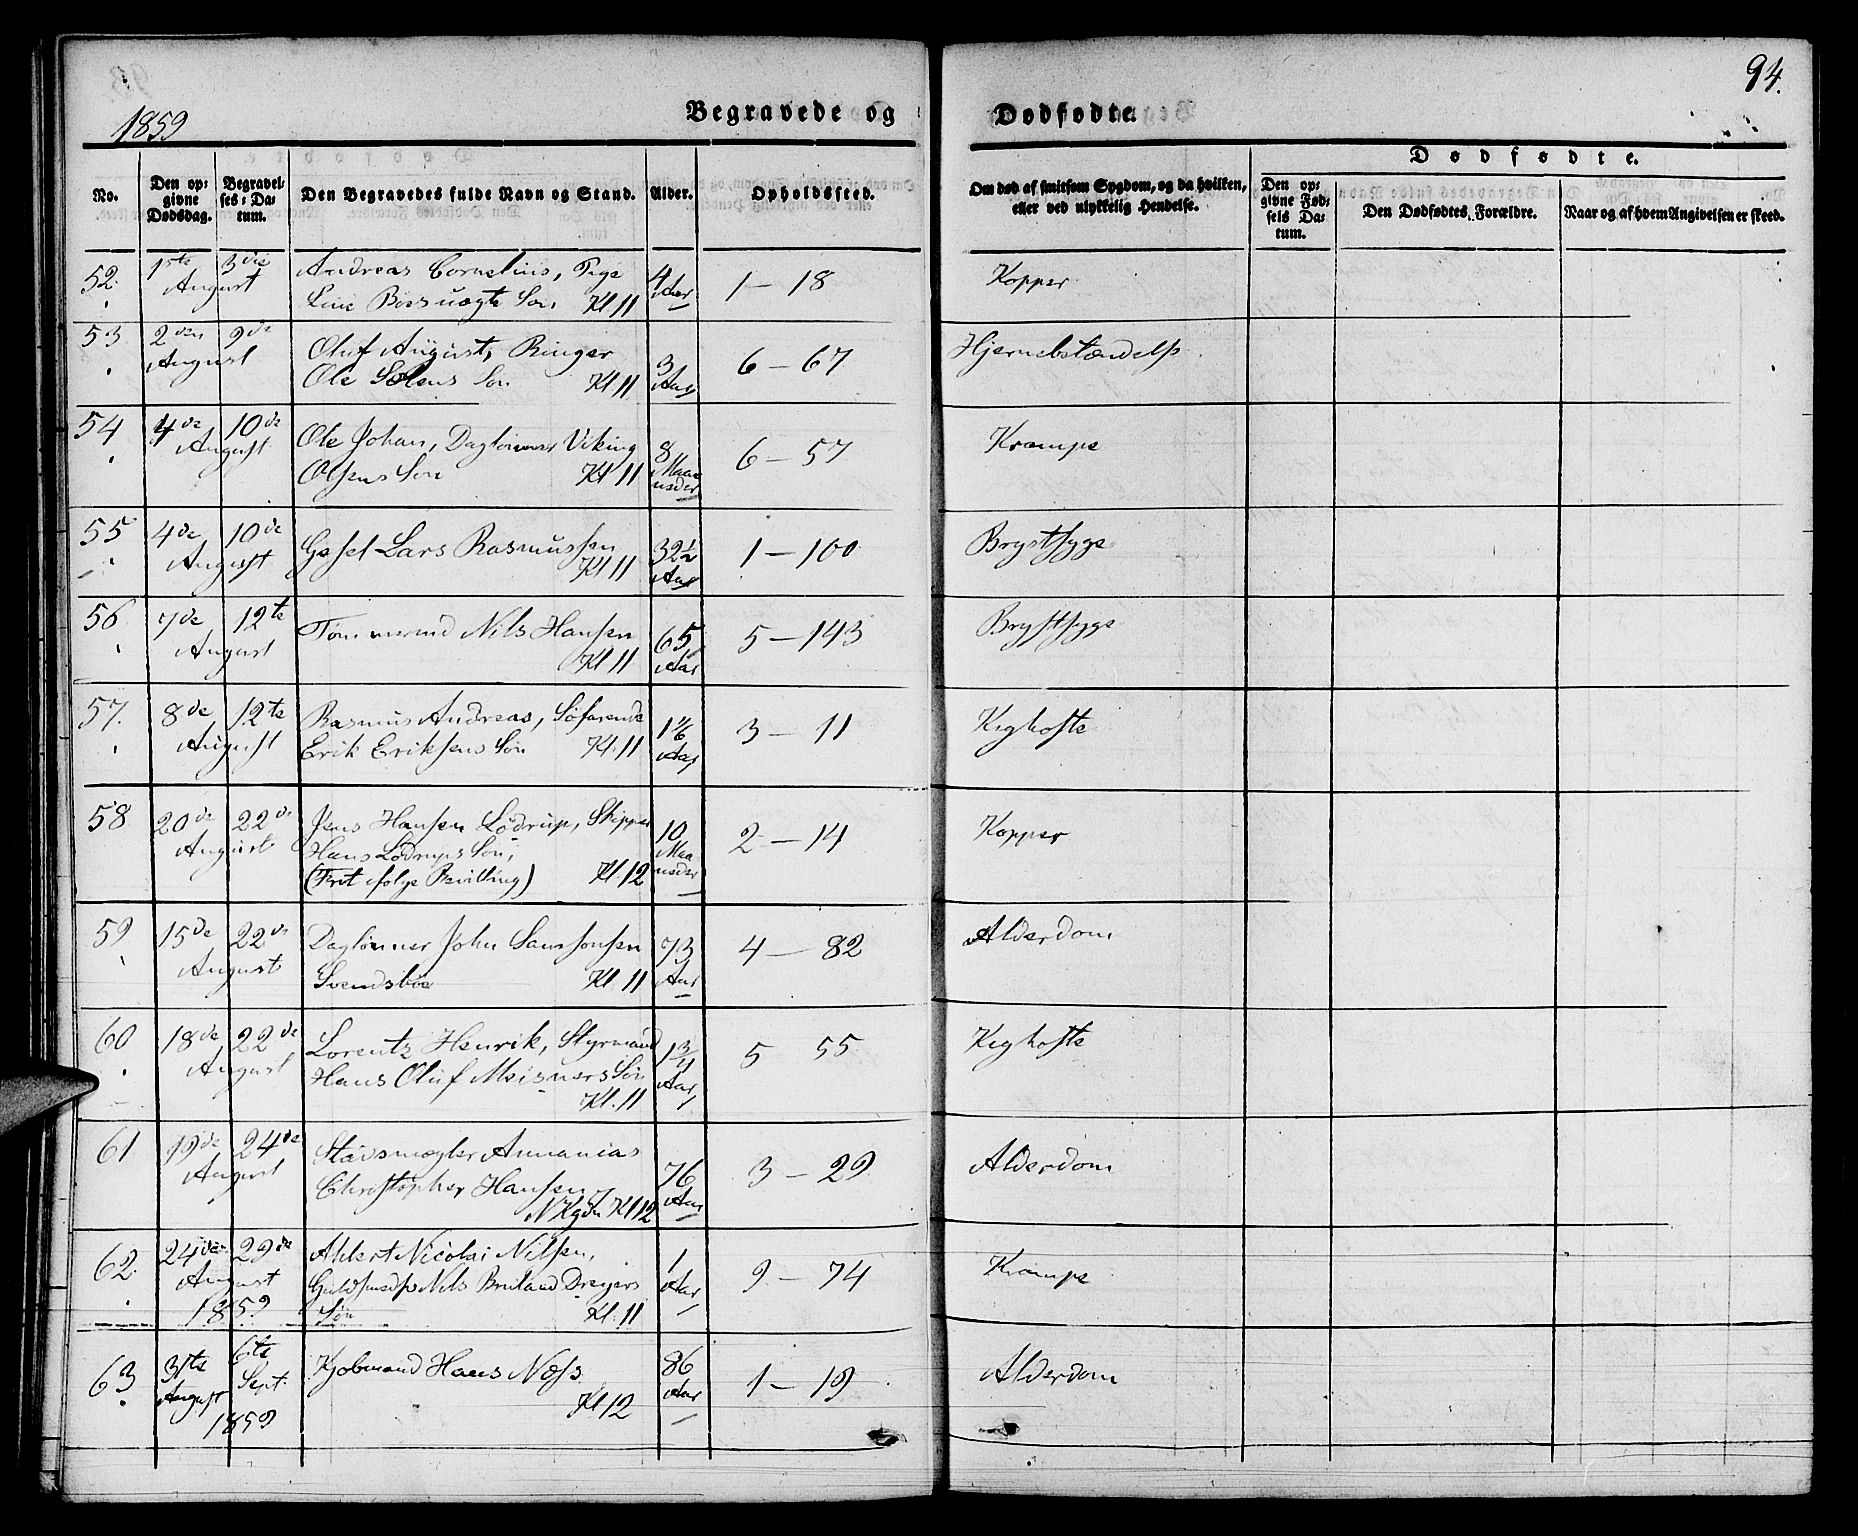 94.
1859
Begravede og
Dødfødte.
No.
Den op=
givne
Dødsdag.
Begravel=
ses=Da=
tum.
Den Begravedes fulde Navn og Stand.
Alder.
Opholdssted.
Om død af smitsom Sygdom, og da hvilken,
eller ved ulykkelig Hendelse.
Dødfødte.
Den op=
givne Fød=
sels Da=
tum.
Den Dødfødtes Forældre.
Naar og af hvem Angivelsen er skeed.
52. 1ste 3die Andreas Cornelius, Pige 4 1 – 18 Kopper
August Søn Kl 11 Aar
53 2den 9de Oluf August, Ringer 3 6 – 67 Hjernebetændelse
August Ole Søn Kl. 11 Aar
54 4de 10de Ole Johan, Daglønner Viking 8 6 – 57 Krampe
August Olsens Søn Kl 11 Maa
neder
55 4de 10de Gesel Lars Rasmussen 32½ 1 – 100 Brystsyge
August Kl 11 Aar
56 7de 12te Tømmermd Nils Hansen 65 5 – 143 Brystsyge
August Kl 11 Aar
57. 8de 12te Rasmus Andreas, Søfarende 1 3 – 11 Kighoste
August Erik Eriksens Søn Kl. 11 Aar
58 20de 22de Jens Hansen Lødrup, Skipper 10 2 – 14 Kopper
August Hans Lødrups Søn, Maa
(Frit ifølge Bevilling) Kl. 12 neder
59 15de 22de Daglønner John 73 4 – 82 Alderdom
August Svendsbøe Kl. 11 Aar
60 18de 22de Lorentz Henrik, Styrmand 1¾ 5 55 Kighoste
August Hans Oluf Meisners Søn Aar
Kl. 11
61 19de 24de Annanias 76 3 – 29 Alderdom
August Christopher Hansen Aar
Kl 12
62. 24de 29de Ahlert Nicolai Nilsen, 1 9 – 74 Krampe
August Guldsmed Nils Dreyers Aar
1859 Søn Kl. 11
63 31te 6te Kjøbmand Hans Næss 86 1 – 19 Alderdom
August Sept. Kl 12 Aar
1859